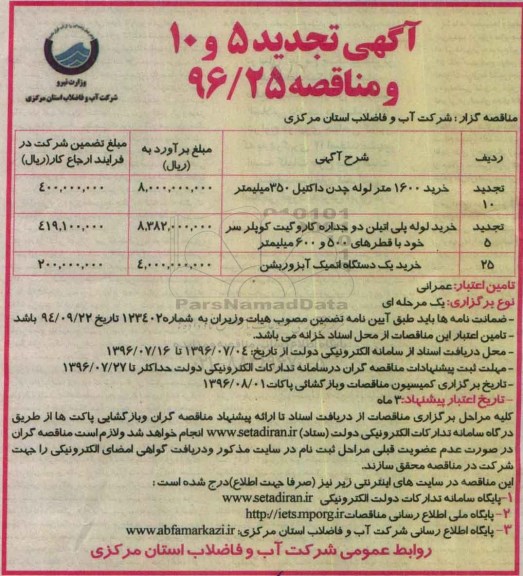 آگهی تجدید ۵ و ۱۰
و مناقصه ۹۶/۲۵
وزارت نیرو
شرکت آب و فاضلاب استان مرکزی
مناقصه گزار: شرکت آب و فاضلاب استان مرکزی
ردیف | شرح آگهی | مبلغ برآورد به (ریال) | مبلغ تضمین شرکت در فرایند ارجاع کار(ریال)
تجدید ۱۰ | خرید ۱۶۰۰ متر لوله چدن داکتیل ۳۵۰میلیمتر | ۸,۰۰۰,۰۰۰,۰۰۰ | ۴۰۰,۰۰۰,۰۰۰
تجدید ۵ | خرید لوله پلی اتیلن دو جداره کاروگیت کوپلر سر خود با قطرهای ۵۰۰ و ۶۰۰ میلیمتر | ۸,۳۸۲,۰۰۰,۰۰۰ | ۴۱۹,۱۰۰,۰۰۰
۲۵ | خرید یک دستگاه اتمیک آبزوربشن | ۴,۰۰۰,۰۰۰,۰۰۰ | ۲۰۰,۰۰۰,۰۰۰
ParsNamadData
تامین اعتبار: عمرانی
نوع برگزاری: یک مرحله ای
- ضمانت نامه ها باید طبق آیین نامه تضمین مصوب هیات وزیران به شماره۱۲۳۴۰۲ تاریخ ۹۴/۰۹/۲۲ باشد
- تامین اعتبار این مناقصات از محل اسناد خزانه می باشد.
- محل دریافت اسناد از سامانه الکترونیکی دولت از تاریخ: ۱۳۹۶/۰۷/۰۴ تا ۱۳۹۶/۰۷/۱۶
- مهلت ثبت پیشنهادات مناقصه گران درسامانه تدارکات الکترونیکی دولت حداکثر تا ۱۳۹۶/۰۷/۲۷
- تاریخ برگزاری کمیسیون مناقصات وبازگشائی پاکات:۱۳۹۶/۰۸/۰۱
- تاریخ اعتبار پیشنهاد: ۳ ماه
کلیه مراحل برگزاری مناقصات از دریافت اسناد تا ارائه پیشنهاد مناقصه گران وبازگشایی پاکت ها از طریق
درگاه سامانه تدارکات الکترونیکی دولت (ستاد) www.setadiran.ir انجام خواهد شد ولازم است مناقصه گران
در صورت عدم عضویت قبلی مراحل ثبت نام در سایت مذکور ودریافت گواهی امضای الکترونیکی را جهت
شرکت در مناقصه محقق سازند.
این مناقصه در سایت های اینترنتی زیر نیز (صرفا جهت اطلاع)درج شده است :
۱-پایگاه سامانه تدارکات دولت الکترونیکی www.setadiran.ir
۲- پایگاه ملی اطلاع رسانی مناقصات http://iets.mporg.ir
۳- پایگاه اطلاع رسانی شرکت آب و فاضلاب استان مرکزی: www.abfamarkazi.ir
روابط عمومی شرکت آب و فاضلاب استان مرکزی